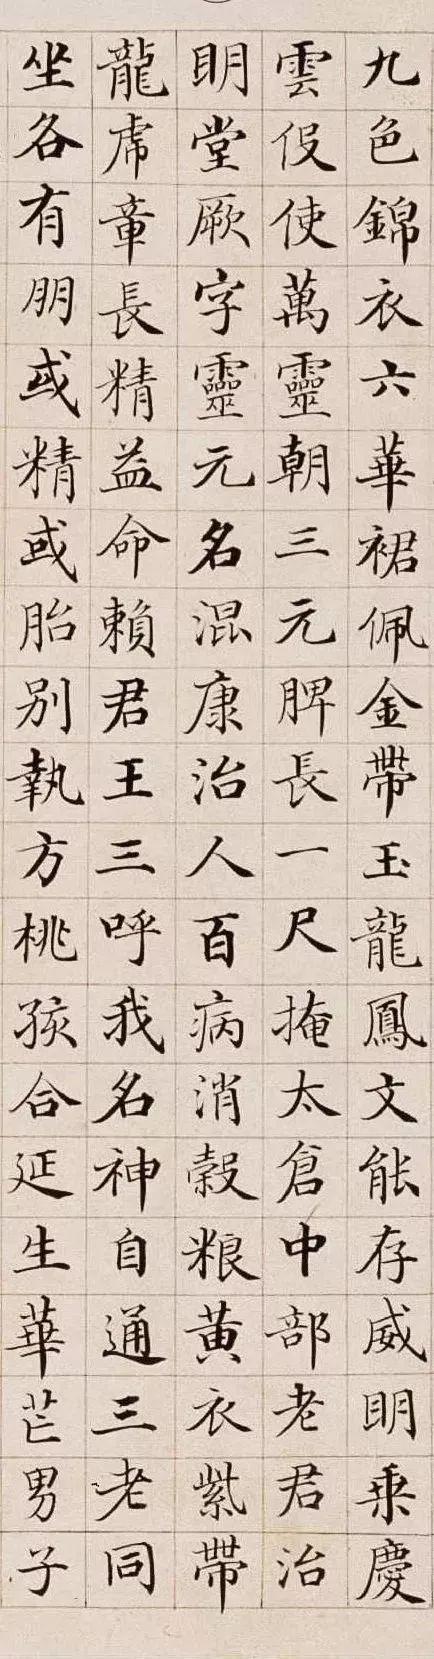 九色錦衣六華裙佩金帶玉龍鳳文能存威明乗慶
雲伇使萬靈朝三元脾長一尺掩太倉中部老君治
明堂厥字靈元名混康治人百病消穀粮黃衣紫帶
龍虎章長精益命賴君王三呼我名神自通三老同
坐各有朋或精或胎別執方桃孩合延生華芒男子